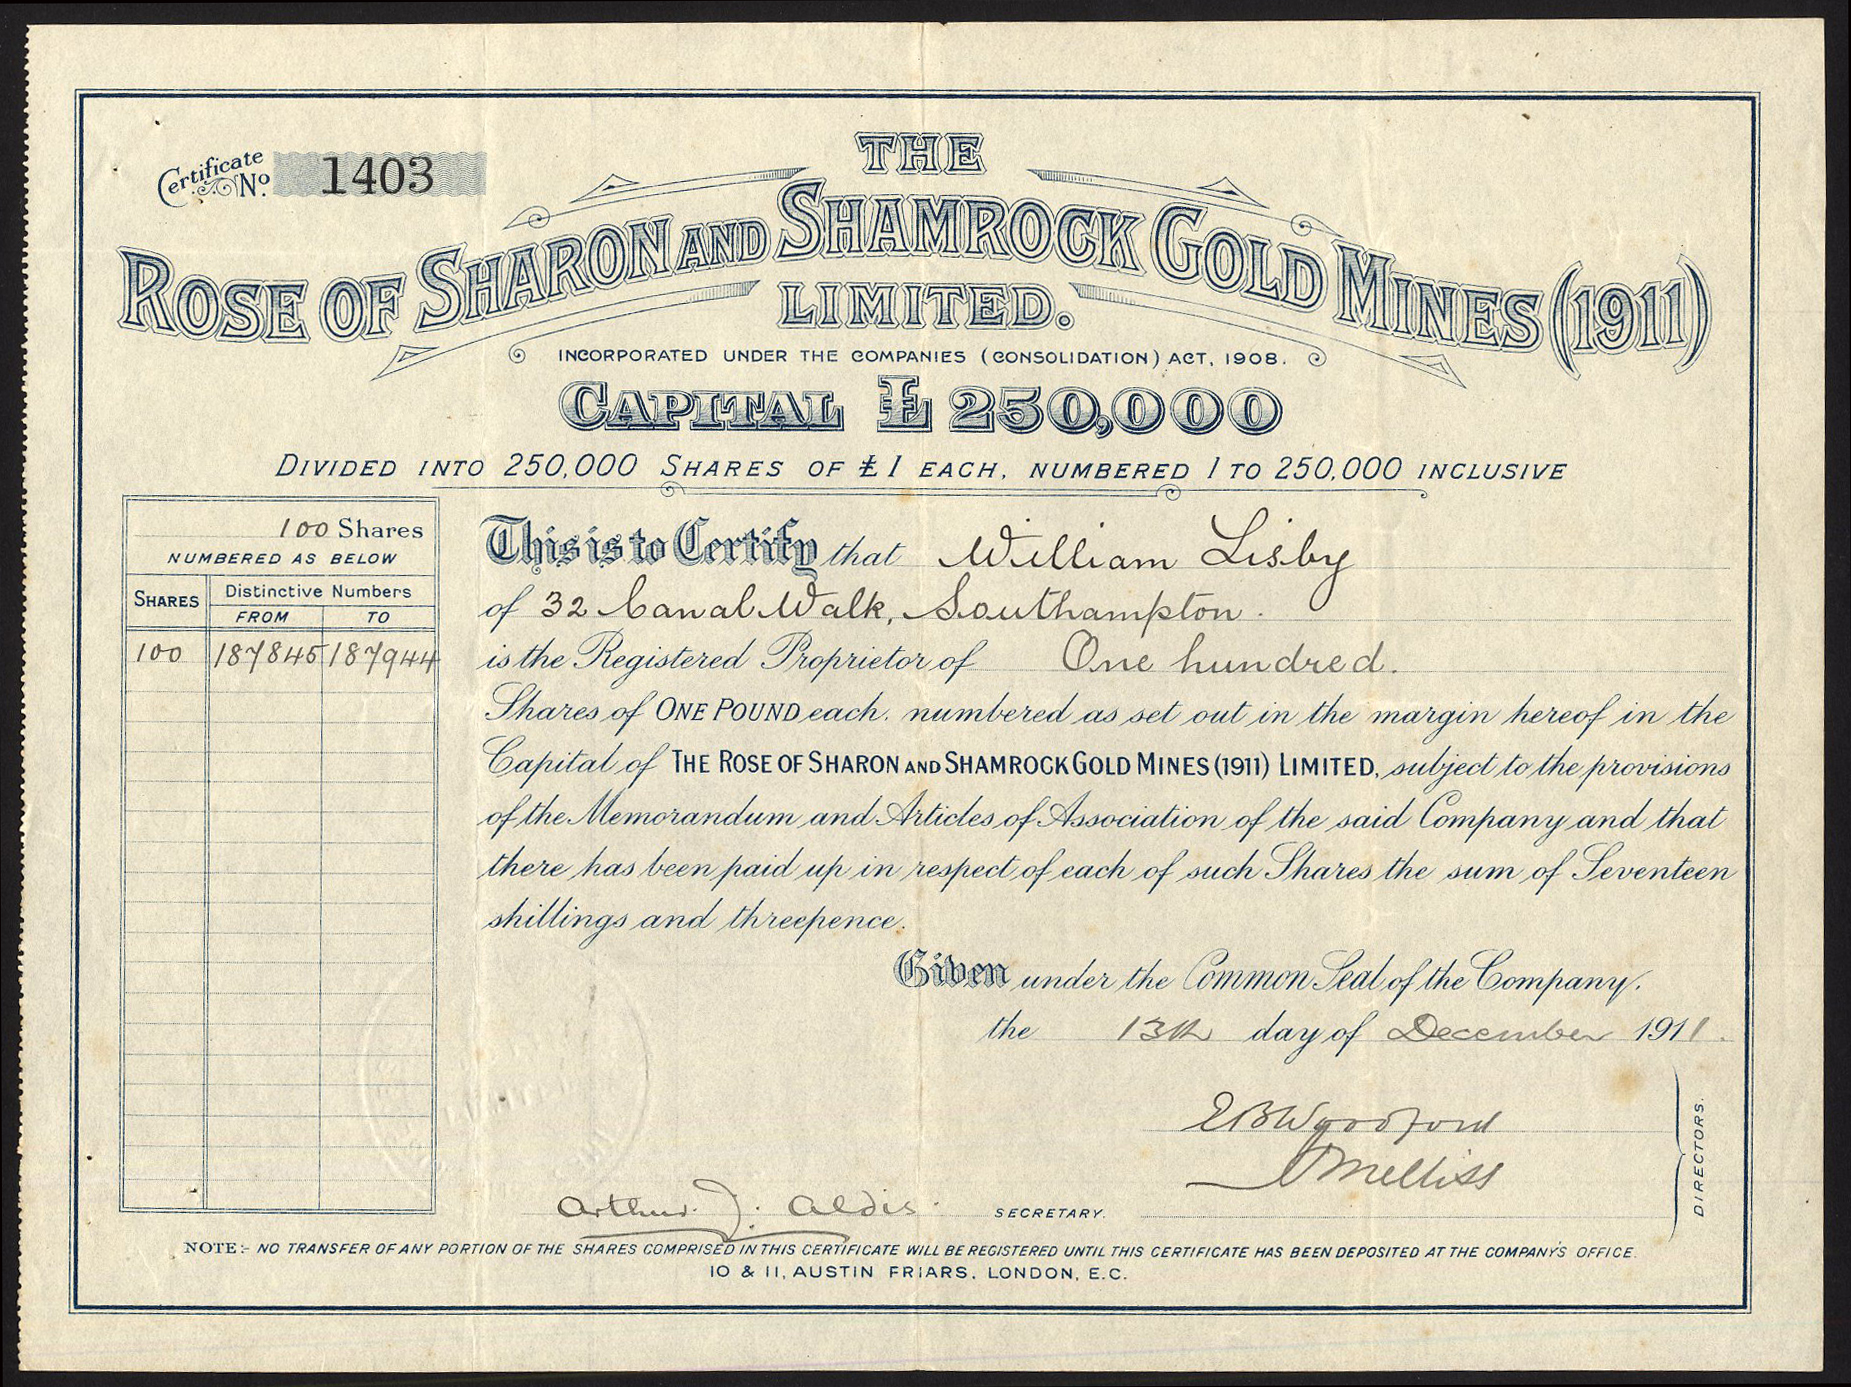 Certificate No. 1403
THE
ROSE OF SHARON AND SHAMROCK GOLD MINES (1911)
LIMITED.
INCORPORATED UNDER THE COMPANIES (CONSOLIDATION) ACT, 1908.
CAPITAL £250,000
DIVIDED INTO 250,000 SHARES OF £1 EACH, NUMBERED 1 TO 250,000 INCLUSIVE
100 Shares
NUMBERED AS BELOW
SHARES Distinctive Numbers
FROM TO
100 187845 187944
This is to Certify that William Lisby
of 32 Canal Walk, Southampton.
is the Registered Proprietor of One hundred.
Shares of ONE POUND each, numbered as set out in the margin hereof in the
Capital of THE ROSE OF SHARON AND SHAMROCK GOLD MINES (1911) LIMITED, subject to the provisions
of the Memorandum and Articles of Association of the said Company and that
there has been paid up in respect of each of such Shares the sum of Seventeen
shillings and threepence.
Given under the Common Seal of the Company.
the 13th day of December 1911.
E B Woodford
Melliss
DIRECTORS.
Arthur J. Aldis. SECRETARY.
NOTE:- NO TRANSFER OF ANY PORTION OF THE SHARES COMPRISED IN THIS CERTIFICATE WILL BE REGISTERED UNTIL THIS CERTIFICATE HAS BEEN DEPOSITED AT THE COMPANY'S OFFICE.
10 & 11, AUSTIN FRIARS, LONDON, E.C.